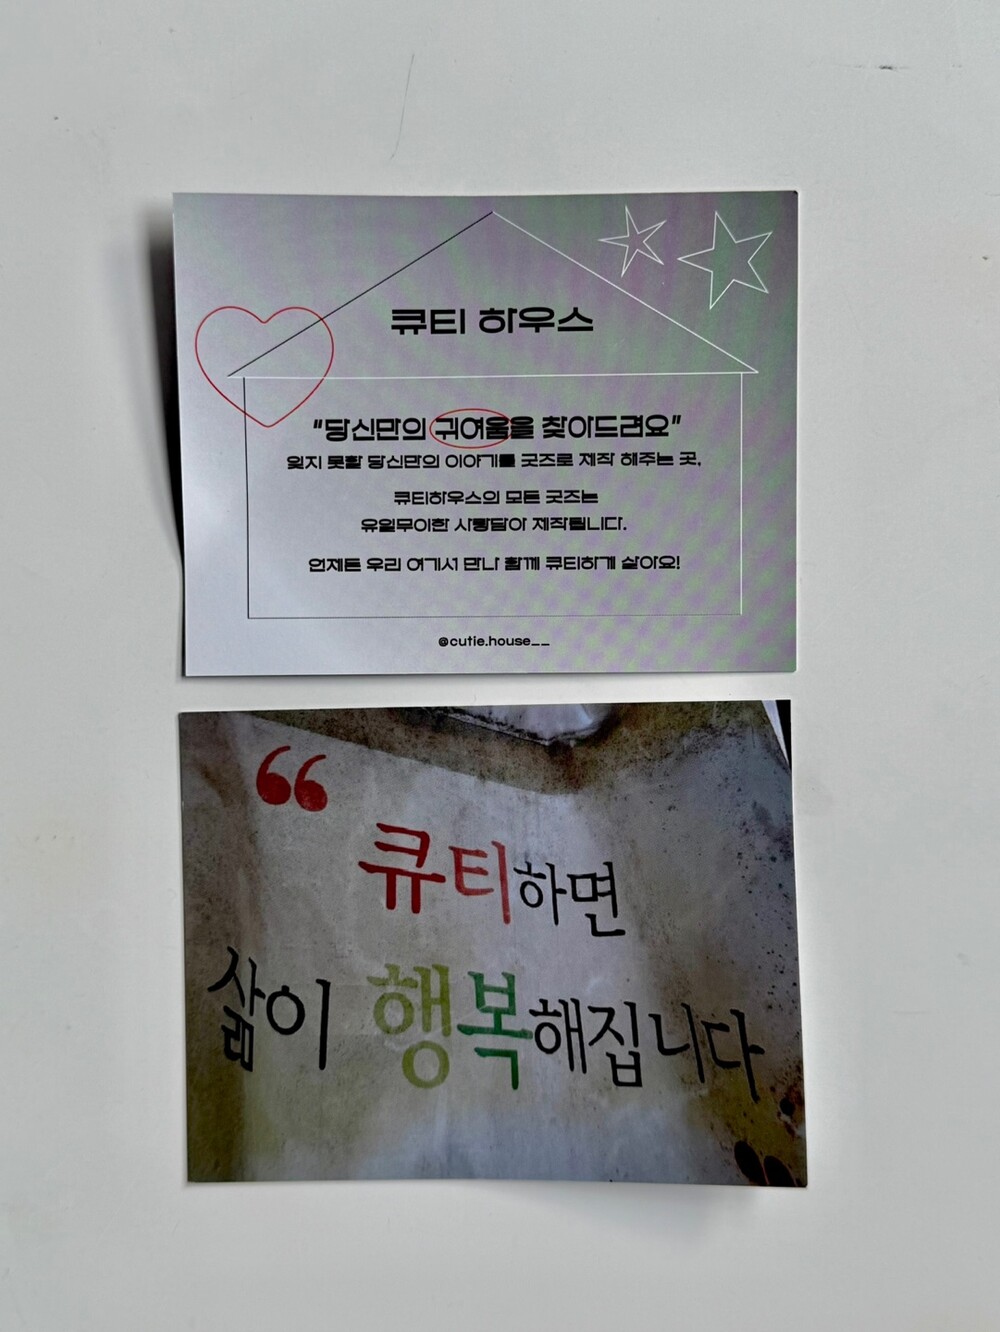 큐티 하우스
"당신만의 귀여움을 찾아드려요"
잊지 못할 당신만의 이야기를 굿즈로 제작 해주는 곳,
큐티하우스의 모든 굿즈는
유일무이한 사랑담아 제작됩니다.
언제든 우리 여기서 만나 함께 큐티하게 살아요!
@cutie.house__
“
큐티하면
삶이 행복해집니다
”